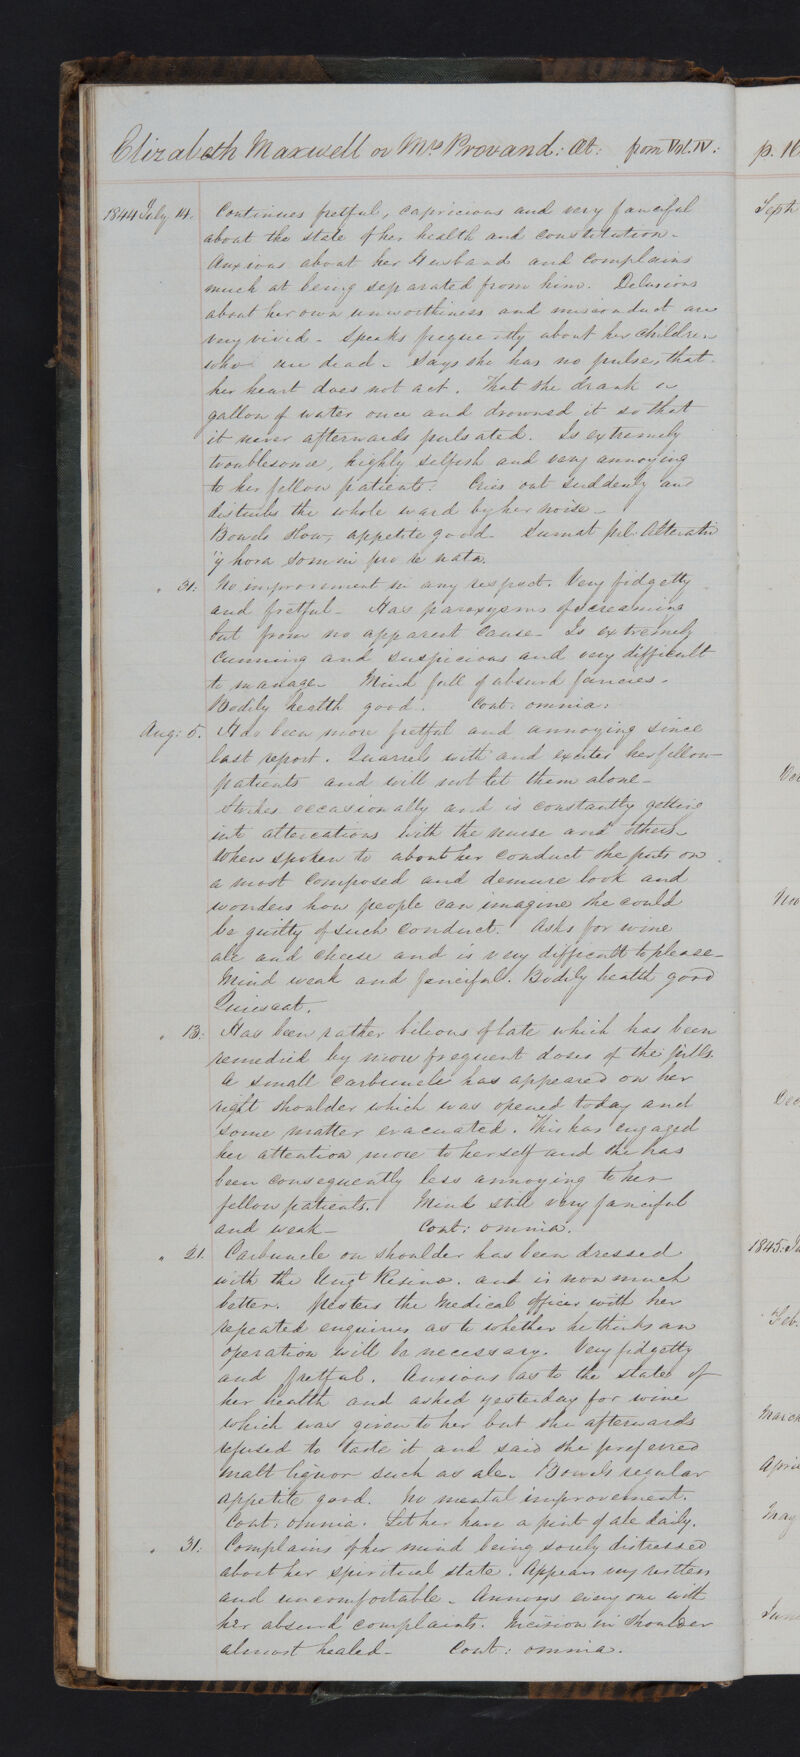 Elizabeth Maxwell or Mrs Provand: at: from Vol. IV:
1844 July 14. Continues fretful, capricious and very fanciful
about the state of her health and constitution.
Anxious about her Husband and complains
much at being separated from him. Delusions
about her own unworthiness and misconduct are
very vivid - Speaks frequently about her children
who are dead. Says she has no pulse, that
her heart does not act. That she drank a
gallon of water once and drowned it so that
it never afterwards pulsated. Is extremely
troublesome, highly selfish and very annoying
to her fellow patients. Cries out suddenly and
disturbs the whole ward by her noise -
Bowels slow, appetite good. Sumat pil.
hora somni pro re nata.
" 31: No improvement in any respect. Very fidgetty
and fretful - Has paroxysms of screaming
but from no apparent cause - Is extremely
cunning and suspicious and very difficult
to manage. Mind full of absurd fancies.
Bodily health good. Cont: omnia:
Aug: 5. Has been more fretful and annoying since
last report. Quarrels with and excites her fellow
patients and will not let them alone -
Strikes occasionally and is constantly getting
into altercations with the nurse and others -
When spoken to about her conduct she puts on
a most composed and demure look and
wonders how people can imagine she could
be guilty of such conduct. Asks for wine
ale and cheese and is very difficult to please -
Mind weak and fanciful. Bodily health good
Quiescat.
" 13: Has been rather bilious of late which has been
remedied by more frequent doses of the pills.
A small carbuncle has appeared on her
right shoulder which was opened today and
some matter evacuated. This has engaged
her attention more to herself and she has
been consequently less annoying to her
fellow patients. Mind still very fanciful
and weak - Cont: omnia.
" 21. Carbuncle on shoulder has been dressed
with the Ungt Resinae. and is now much
better. Pesters the Medical officer with her
repeated enquiries as to whether he thinks an
operation will be necessary. Very fidgetty
and fretful. Anxious as to the state of
her health and asked yesterday for wine
which was given to her but she afterwards
refused to taste it and said she preferred
malt liquor such as ale. Bowels regular
appetite good. No mental improvement.
Cont. omnia. Let her have a pint of ale daily.
" 31: Complains of her mind being sorely distressed
about her spiritual state. Appears very restless
and uncomfortable - Annoys every one with
her absurd complaints. Incision in shoulder
almost healed - Cont: omnia.
p. 16
Sept
Nov
Dec
1845: Ja
Feb.
March
April
May
June